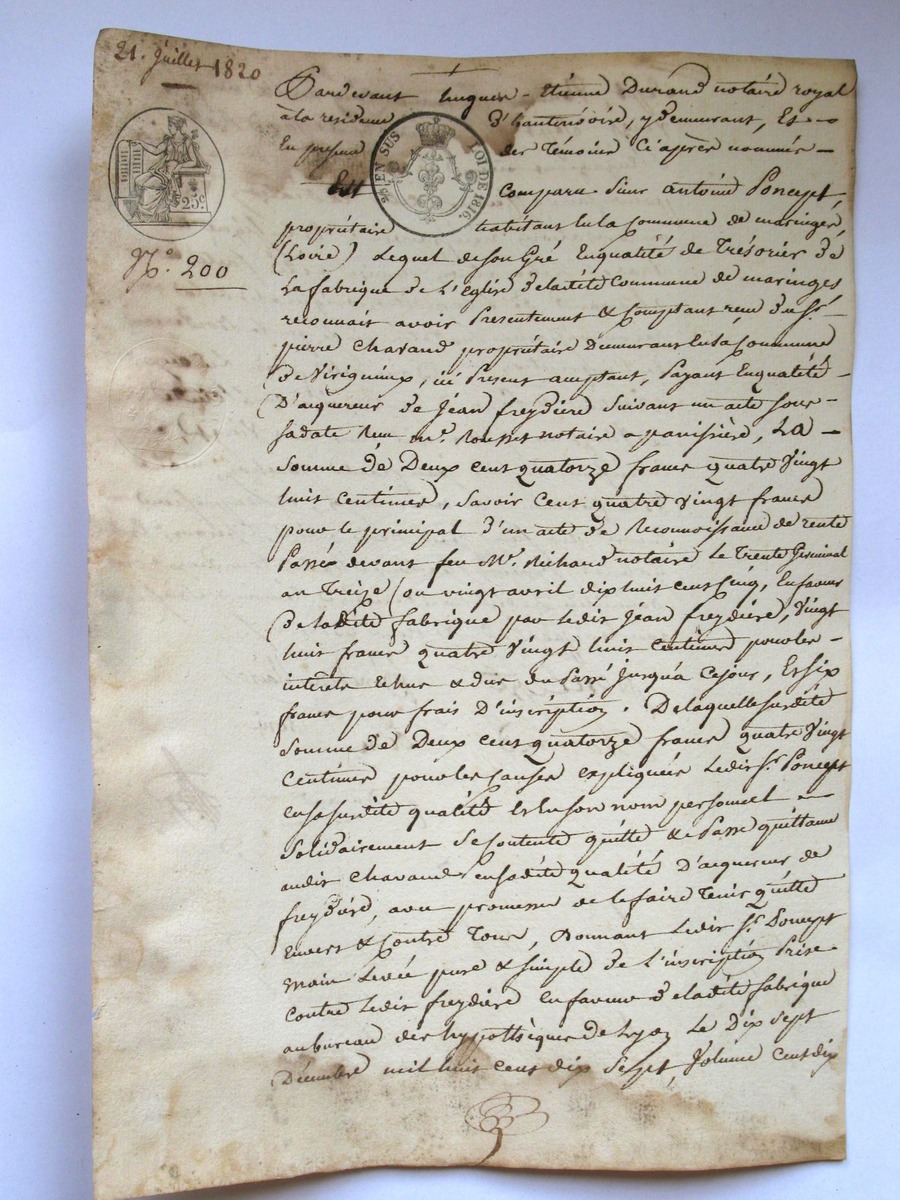 21. Juillet 1820
25c.
EN SUS
LOI DE 1816.
N.° 200
Pardevant hugues - Etienne Durand notaire royal
à la residence d'hauterivoire, y demeurant, Et
En presence des Témoins Ci après nommés -
Est comparu Sieur antoine Poncept,
propriétaire habitant En la Commune de maringes,
(Loire) Lequel de son Gré En qualité de Trésorier de
La fabrique de L'Eglise de ladite Commune de maringes
reconnait avoir Presentement & Comptant reçu du S.r
pierre Chavand propriétaire Demeurant En la Commune
de Virigneux, ici Present acceptant, Payant En qualité
D'aquereur de Jean freydière Suivant un acte sous
sa date Reçu M.e Rousset notaire a panissière, La
Somme de Deux cent quatorze francs quatre Vingt
huit Centimes, Savoir Cent quatre vingt francs
pour le principal d'un acte de Reconnoissance de rente
Passé devant feu M.e Richard notaire Le Trente Germinal
an Treize (ou vingt avril dix huit cent Cinq, En faveur
de ladite fabrique par ledit Jean freydière, Vingt
huit francs quatre Vingt huit Centimes pour les
interets Echus & dus du Passé Jusqu'a Ce jour, Et Six
francs pour frais D'inscription. De laquelle Susdite
Somme de Deux cent quatorze francs quatre Vingt
Centimes pour les Causes expliquées Ledit S.r Poncept
en sa susdite qualité Et En son nom personnel
Solidairement Se Contente quitte & Passe quittance
audit Chavand en sadite qualité D'aquereur de
freydière, avec promesse de le faire Tenir Quitte
Envers & Contre Tous, Donnant Ledit S.r Poncept
main Levée pure & Simple de L'inscription Prise
Contre Ledit freydière en faveur de ladite fabrique
au bureau des hypothèques de Lyon Le Dix Sept
Décembre mil huit cent dix Sept, Volume Cent dix